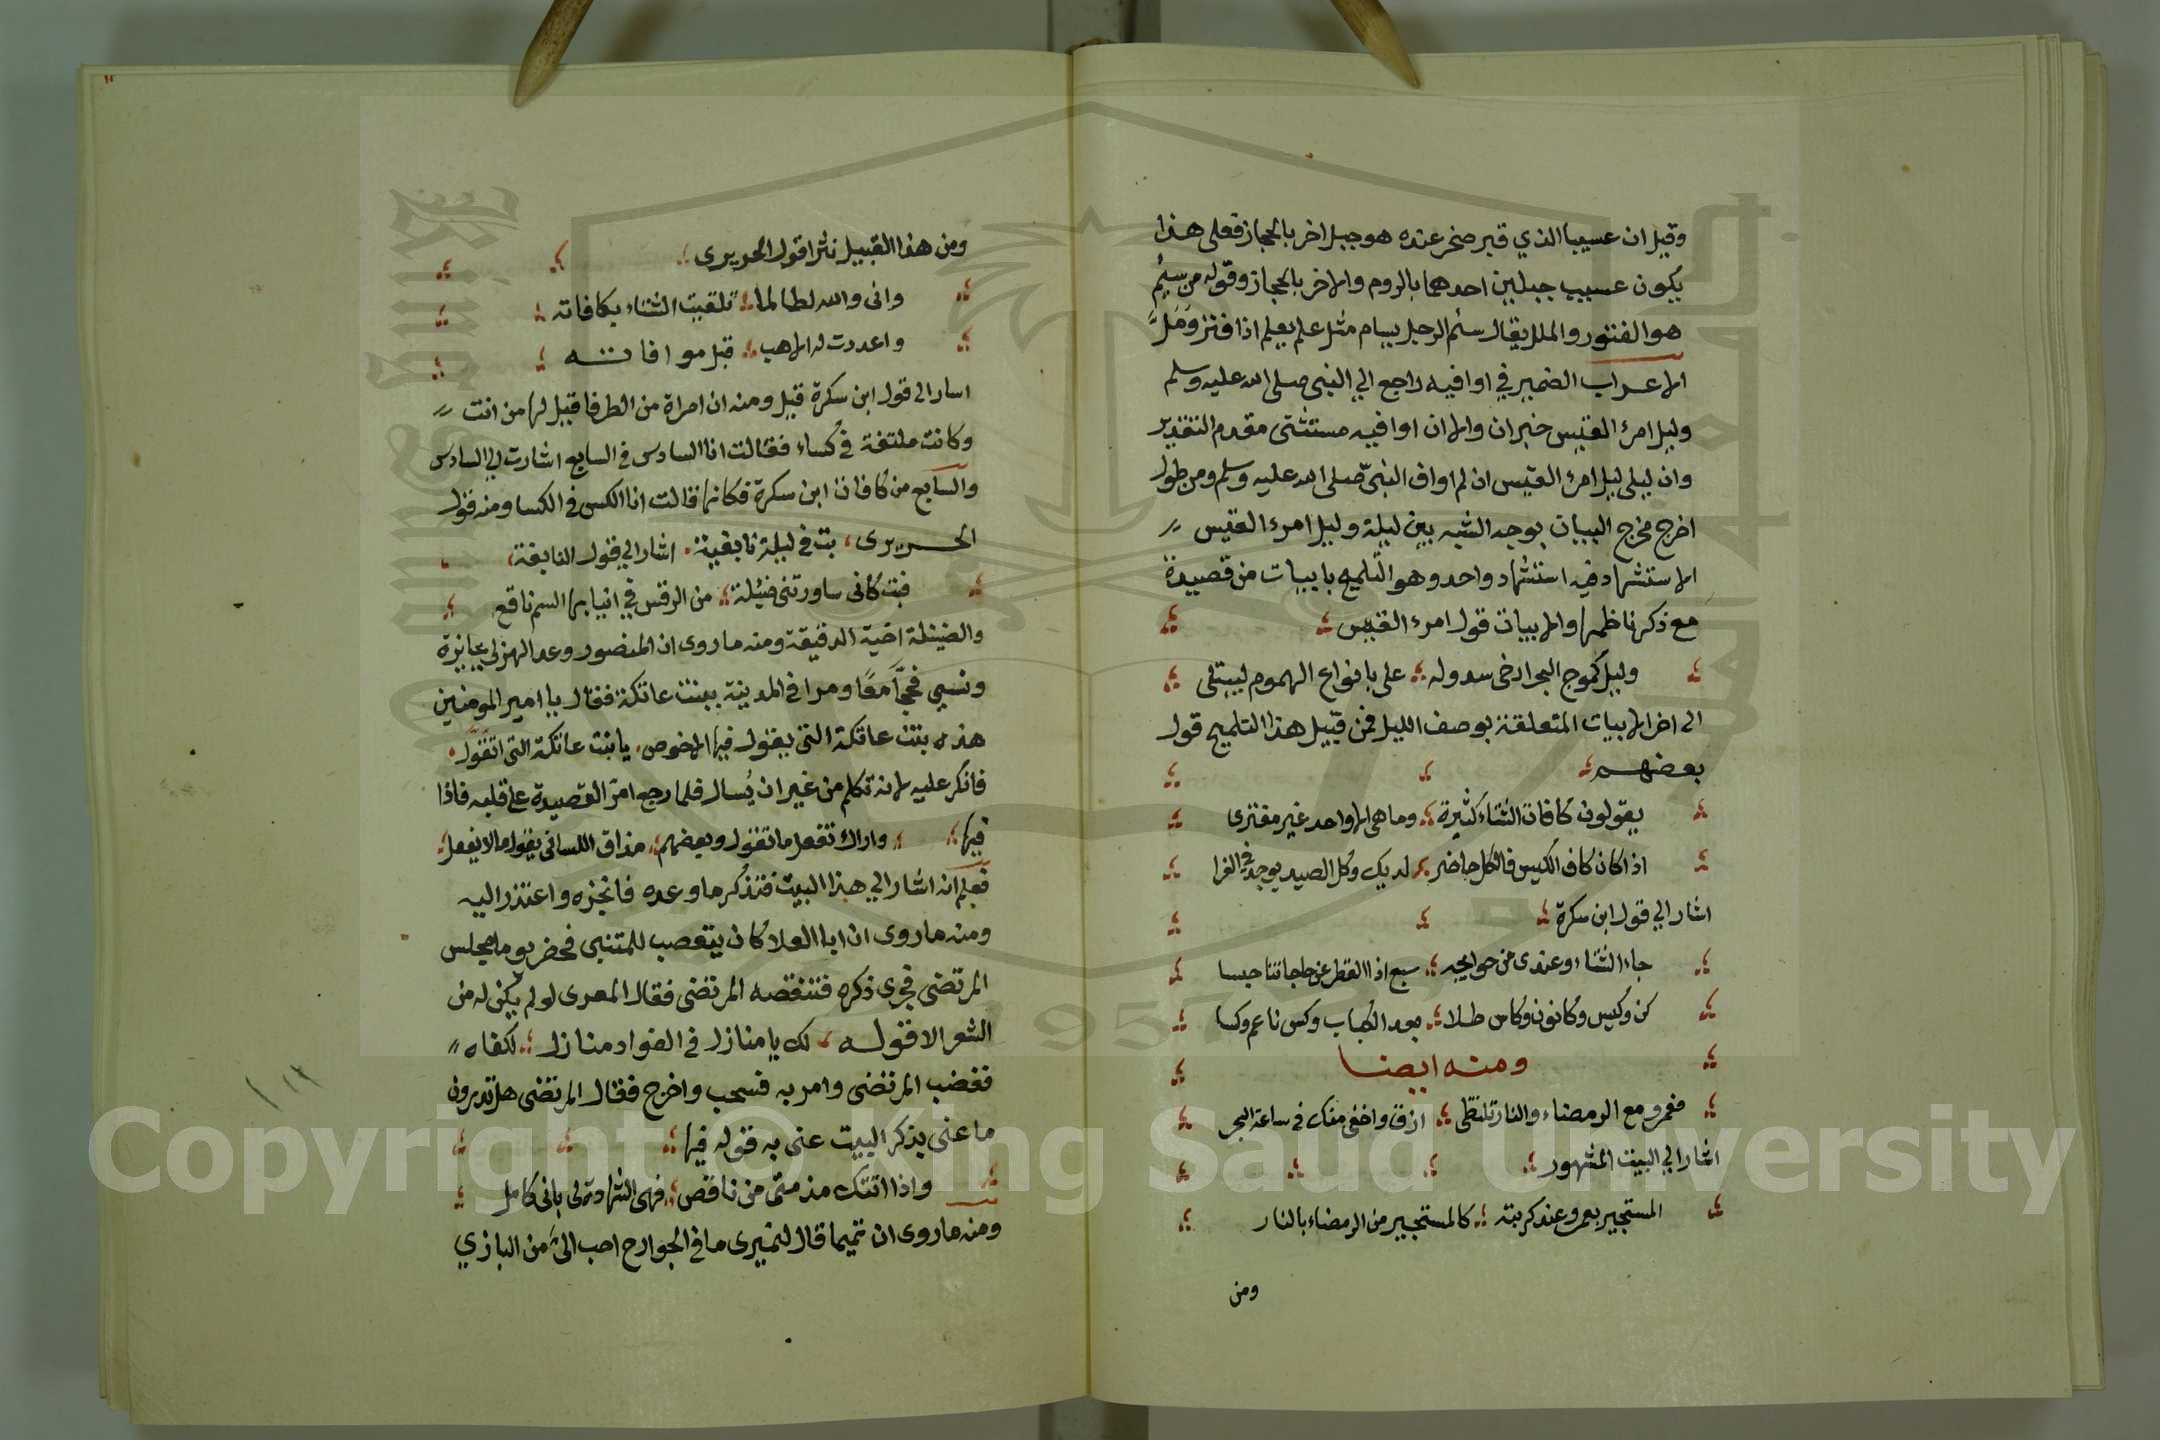 وقيل ان عسيبا الذي قبر صخر عنده هو جبل اخر بالحجاز فعلى هذا
يكون عسيب جبلين احدهما بالروم والاخر بالحجاز وقوله من سئم
هو الفتور والملل يقال سئم الرجل يسام مثل علم يعلم اذا فتر ومل
الاعراب الضمير في اوافيه راجع الي النبي صلى الله عليه وسلم
وليل امرء القيس خبر ان والا ان اوافيه مستثنى مقدم التقدير
وان ليلى ليل امرء القيس ان لم اواف النبي صلى الله عليه وسلم ومن طول
اخرج مخرج البيان بوجه الشبه بين ليلة وليل امرء القيس
الاستشهاد فيه استشهاد واحد وهو التلميح بابيات من قصيدة
مع ذكر ناظمها والابيات قول امرء القيس
وليل كموج البحر ارخى سدوله على بانواع الهموم ليبتلى
الى اخر الابيات المتعلقة بوصف الليل فمن قبيل هذا التلميح قول
بعضهم
يقولون كافات الشتاء كثيرة وما هى الا واحد غير مفترى
اذا كان كاف الكيس فالكل حاضر لديك وكل الصيد يوجد في الفرا
اشار الي قول ابن سكرة
جاء الشتاء وعندى من حوايجه سبع اذا القطر عن حاجاتنا حبسا
كن وكيس وكانون وكاس طلا بعد الكباب وكس ناعم وكسا
ومنه ايضا
فعمرو مع الرمضاء والنار تلتظى ارق واحفى منك في ساعة الهجر
اشار الي البيت المشهور
المستجير بعمرو عند كربته كالمستجير من الرمضاء بالنار
ومن
١٠
ومن هذا القبيل نثرا قول الحريرى
وانى والله لطالما تلقيت الشتاء بكافاته
واعددت له الاهب قبل موافاته
اسار الى قول ابن سكرة قيل ومنه ان امراة من الظرفا قيل لها من انت
وكانت ملتفة في كساء فقالت انا السادس فى السابع اشارت الي السادس
والسابع من كافات ابن سكرة فكانها قالت انا الكس فى الكسا ومنه قول
الحريرى بت فى ليلة نابغية اشار الي قول النابغة
فبت كانى ساورتنى ضئيلة من الرقس في انيابها السم ناقع
والضئيلة الحية الدقيقة ومنه ما روى ان المنصور وعد الهزلى بجايزة
ونسي فحجا معا ومرا في المدينة ببيت عاتكة فقال يا امير المومنين
هذه بيت عاتكة التى يقول فيها الاخوص يا بيت عاتكة التى اتغزل
فانكر عليه لانه تكلم من غير ان يسال فلما رجع امر القصيدة على قلبه فاذا
فيها واراك تفعل ما تقول وبعضهم مذاق اللسان يقول ما لا يفعل
فعلم انه اشار الي هذا البيت فتذكر ما وعده فانجزه واعتذر اليه
ومنه ما روى ان ابا العلا كان يتعصب للمتنبى فحضر يوما مجلس
المرتضى فجرى ذكره فتنقصه المرتضى فقال المعرى لو لم يكن له من
الشعر الا قوله لك يا منازل في الفواد منازل لكفاه
فغضب المرتضى وامر به فسحب واخرج فقال المرتضى هل تدرون
ما عنى بذكر البيت عنى به قوله فيها
واذا اتتك مذمتى من ناقص فهى الشهادة لى بانى كامل
ومنه ما روى ان تميما قال لنميرى ما في الجوارح احب الى من البازي
Copyright © King Saud University
King Saud University
1957